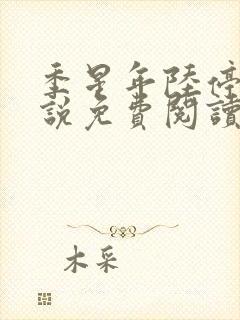 季星年陸停
說免費閱讀
木采